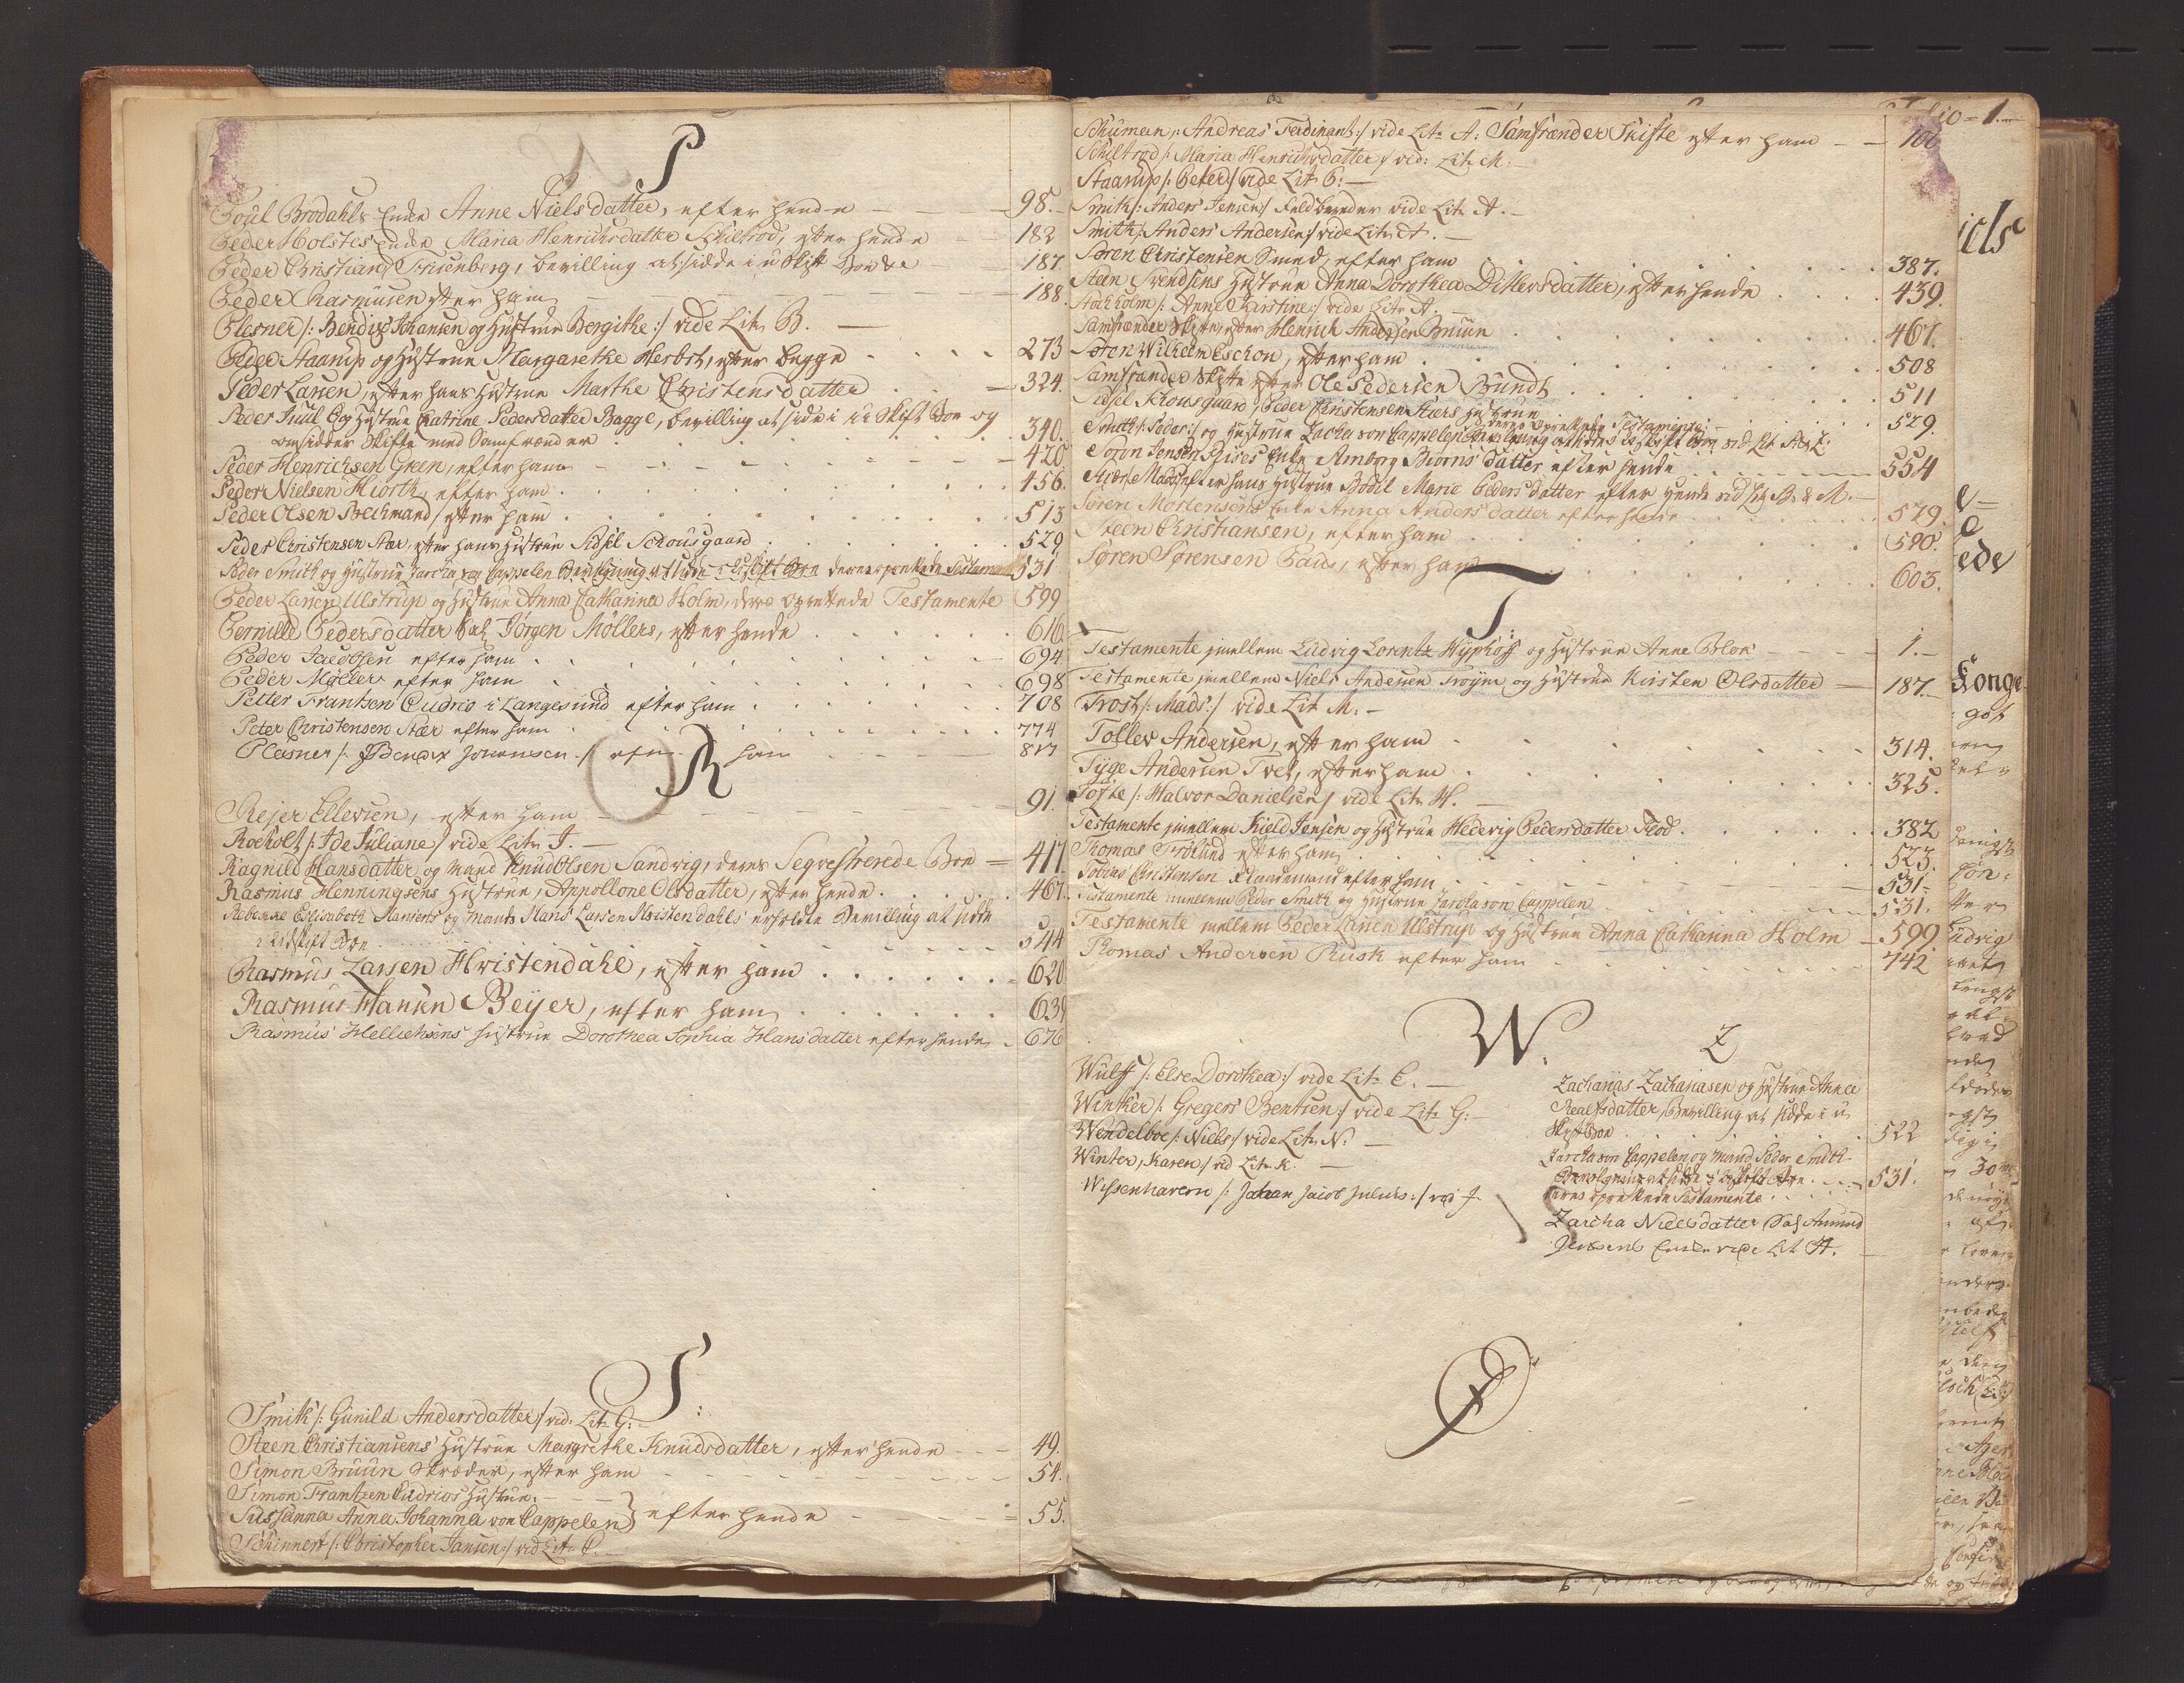 P
Poul Brodahls Enke Anne Nielsdatter, efter hende — 98.
Peder Holstes Enke Maria Henrichsdatter Schiltrod, efter hende — 182
Peder Christian Friisenberg, bevilling at sidde i uskift Boe &c — 187.
Peder Rasmusen efter ham — 188.
Plesner /: Bendix Johansen og Hustrue Bergithe :/ vide Litr B. —
Peder Staarup og Hustrue Margarethe Herbst, efter begge . . . . 273
Peder Larsen, efter hans Hustrue Marthe Christensdatter . . — 324.
Peder Juul Og Hustrue Catrine Pedersdatter Bagge, bevilling at side i u Skift Boe og
omsidder Skifte med Samfrænder . . . 340.
Peder Henrichsen Green, efter ham — 420.
Peder Nielsen Hiorth, efter ham . . . 456.
Peder Olsen Beckmand, efter ham . . . 513
Peder Christensen Stær, efter hans Hustrue Sidsel Schousgaard . . . 529
Peder Smith og Hustrue Zarcha von Cappelen Bevilgning at sidde i Uskift Boe deres oprettede Testamente 531
Peder Larsen Ulstrup og Hustrue Anna Catharina Holm, deres oprettede Testamente 599
Pernille Pedersdatter Sal. Jørgen Møllers, efter hende . . . 616.
Peder Jacobsen efter ham . . . 694.
Peder Møller efter ham . . . 698
Petter Frantzen Cudrio i Langesund efter ham . . . 708
Peter Christensen Stær efter ham . . . 774
Plesner /: Bendix Johansen :/ efter ham — 817
R
Rejer Ellevsen, efter ham — 91.
Rocholt /: Ide Juliane :/ vide Litr J. —
Ragnild Hansdatter og Mand Knud Olsen Sandvig, deres Seqvestrerede Boe = 417.
Rasmus Henningsens Hustrue, Appollone Olsdatter, efter hende . . . 467.
Rebecca Elisabeth Hansens og Mands Hans Larsen Kristendahls erholdte Bevilling at sidde
i Uskift Boe . . . 544
Rasmus Larsen Hristendahl, efter ham . . . 620
Rasmus Hansen Beyer, efter ham . . . 639
Rasmus Melliehsens Hustrue Dorothea Sophia Hansdatter efter hende 676
S:
Smith /: Gunild Andersdatter :/ vid: Litr G: —
Steen Christiansens Hustrue Margrethe Knudsdatter, efter hende — 49.
Simon Bruun Skræder, efter ham — 54.
Simon Frantzen Cudrios Hustrue.
Sussanna Anna Johanna von Cappelen } efter hende — 55.
Schinnert /: Christopher Jansen :/ vid Litr C. —
Schuman /: Andreas Ferdinant :/ vide Litr A: Samfrænder Skifte efter ham — 166
Schiltrod /: Maria Henrichsdatter :/ vid: Litr M. —
Staarup /: Peter :/ vide Litr P: —
Smith /: Anders Jensen :/ Feldbereder vide Litr A. —
Smith /: Anders Andersen :/ vide Litr A. —
Søren Christensen Smed, efter ham . . . 387.
Steen Svendsens Hustrue Anna Dorothea Ditlevsdatter, efter hende . . . 439.
Stockholm /: Anne Kirstine :/ vide Litr A. —
Samfrænder Skifte efter Henrich Andersen Bruun . . . 467.
Søren Wilhelm Eschon, efter ham . . . 508
Samfrænder Skifte efter Ole Pedersen Bundt . . . 511
Sidsel Schousgaard, Peder Christensen Stærs Hustrue . . . 529.
Smith /: Peder :/ og Hustrue Zacha von Cappelen Bevilgning at sidde i Uskift Boe vid Lit P & Z.
deres oprettede Testamente
Søren Jensen Riises Enke Amborg Biørns datter efter hende . . . 554
Stær Mads efter hans Hustrue Bodil Marie Peders datter efter hende vid Lit B. & M. —
Søren Mortensens Enke Anna Anders datter efter hende . . . 579.
Steen Christiansen, efter ham . . . 590.
Søren Sørensen Paus, efter ham . . . 603.
T:
Testamente imellem Ludvig Lorentz Wyphoff og Hustrue Anne Blok — 1. —
Testamente imellem Niels Andersen Trøjm og Hustrue Kirsten Olsdatter — 187. —
Trost /: Mads :/ vide Lit M. —
Tollev Andersen, efter ham . . . 314.
Tÿge Andersen Tvet, efter ham . . . 325.
Tofte /: Halvor Danielsen :/ vide Litr H. —
Testamente imellem Kield Jensen og Hustrue Hedevig Pedersdatter Flod . . . 382
Thomas Frølund efter ham . . . 523.
Tobias Christensen Flaademand efter ham — 531.
Testamente imellem Peder Smith og Hustrue Zarcha von Cappelen — 531.
Testamente mellem Peder Larsen Ulstrup og Hustrue Anna Catharina Holm — 599.
Thomas Andersen Rusk efter ham — 742
W.
Wulff /: Else Dorothea :/ vide Litr E. —
Winther /: Gregers Bentsen :/ vide Litr G: —
Wendelboe /: Niels :/ vide Litr N: —
Winter, Karen :/ vid Litr K. —
Wissenhavern /: Johan Jacob Julius :/ vid J.
Z
Zacharias Zachariasen og Hustrue Anne
Realfsdatter, Bevilling at sidde i u
Skift Boe . . . 522
Zarcha von Cappelen og Mand Peder Smith
Bevilgning at sidde i Uskift Boe . . . 531.
deres oprettede Testamente . . .
Zarcha Nielsdatter Sal. Amund
Jensens Enke vide Lit A. —
Folio = 1.